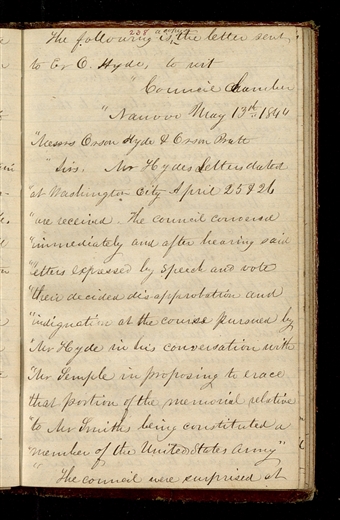 208
The following is a copy of the letter sent
to Er O. Hyde, to wit
"Council Chamber
"Nauvoo May 13th 1844
"Messrs Orson Hyde & Orson Pratt
"Sirs. Mr Hydes Letters dated
"at Washington City April 25 & 26
"are received. The council convened
"immediately and after hearing said
"letters expressed by speech and vote
"their decided disapprobation and
"indignation at the course pursued by
"Mr Hyde in his conversation with
"Mr Semple in proposing to erace
that portion of the memorial relative
"to Mr Smiths being constituted a
"member of the United States Army"
"The council were surprised at